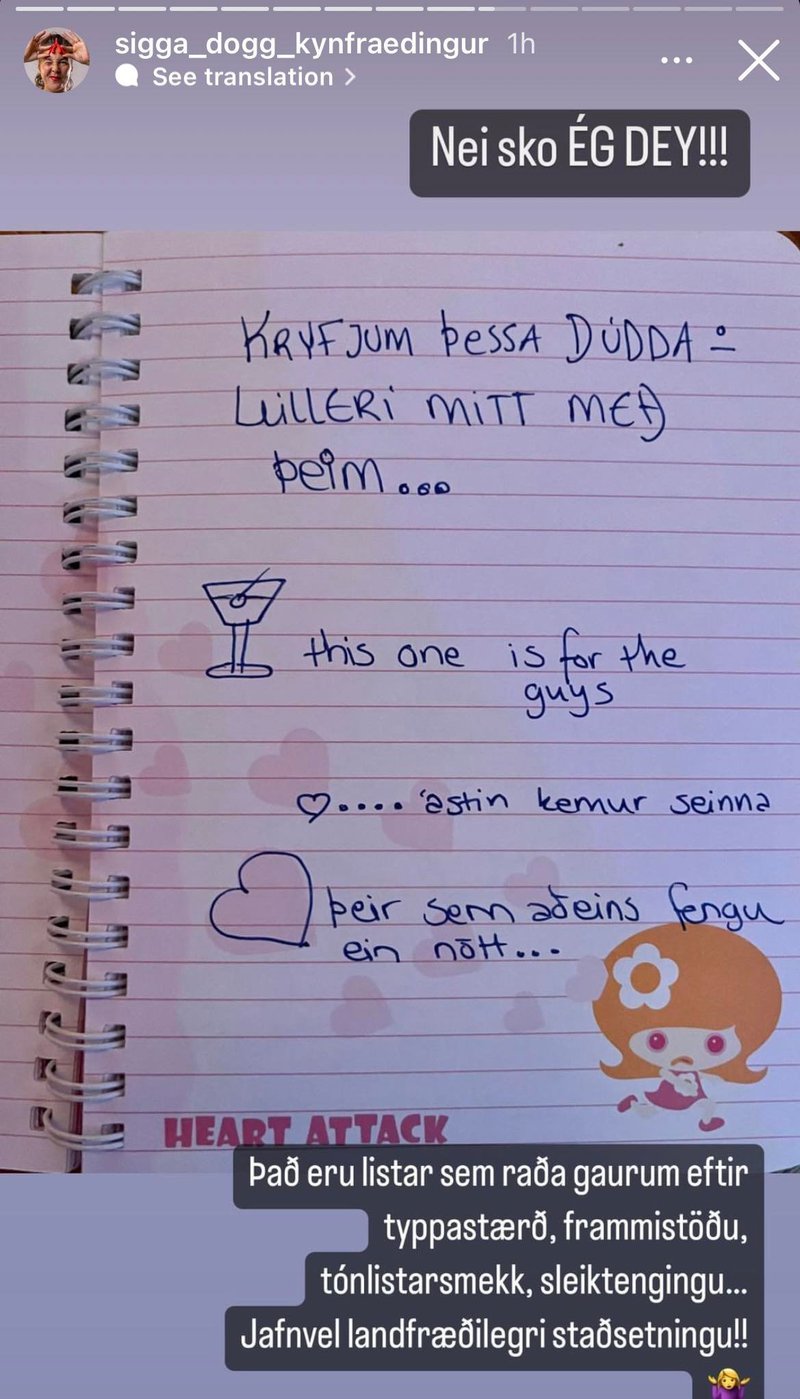 sigga_dogg_kynfraedingur 1h
See translation
Nei sko ÉG DEY!!!
KRYFJUM ÞESSA DÚDDA :
LÚLLERÍ MITT MEÐ
ÞEIM...
this one is for the
guys
.... ástin kemur seinna
Þeir sem aðeins fengu
ein nótt...
HEART ATTACK
Það eru listar sem raða gaurum eftir
typpastærð, frammistöðu,
tónlistarsmekk, sleiktengingu...
Jafnvel landfræðilegri staðsetningu!!